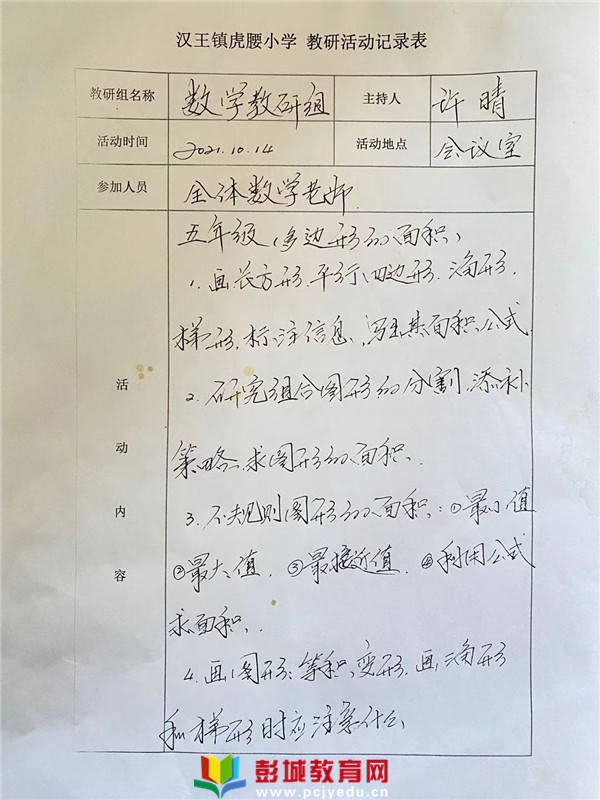 汉王镇虎腰小学 教研活动记录表
教研组名称 数学教研组 主持人 许晴
活动时间 2021.10.14 活动地点 会议室
参加人员 全体数学老师
活动内容
五年级(多边形的面积)
1. 画长方形、平行四边形、三角形、
梯形,标注信息,写出其面积公式
2. 研究组合图形的分割、添补
策略,求图形的面积。
3. 不规则图形的面积:①最小值
②最大值 ③最接近值 ④利用公式
求面积。
4. 画图形:等积变形,画三角形
和梯形时应注意什么
彭城教育网
www.pcjyedu.cn